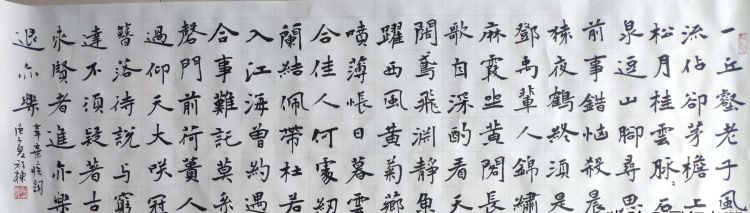 一丘壑老子風
流佔卻茅檐上
松月桂雲脉石
泉逗山腳尋思
前事錯惱殺晨
猿夜鶴終須是
鄧禹輩人錦繡
麻霞坐黃閣長
歌自深酌看天
闊鳶飛淵靜魚
躍西風黃菊薌
噴薄悵日暮雲
合佳人何處紉
蘭結佩帶杜若
入江海曾約遇
合事難託莫
磬門前荷蕢人
過仰天大咲冠
簪落待說与窮
達不須疑著古
來賢者進亦樂
退亦樂
辛棄疾詞
庚子夏